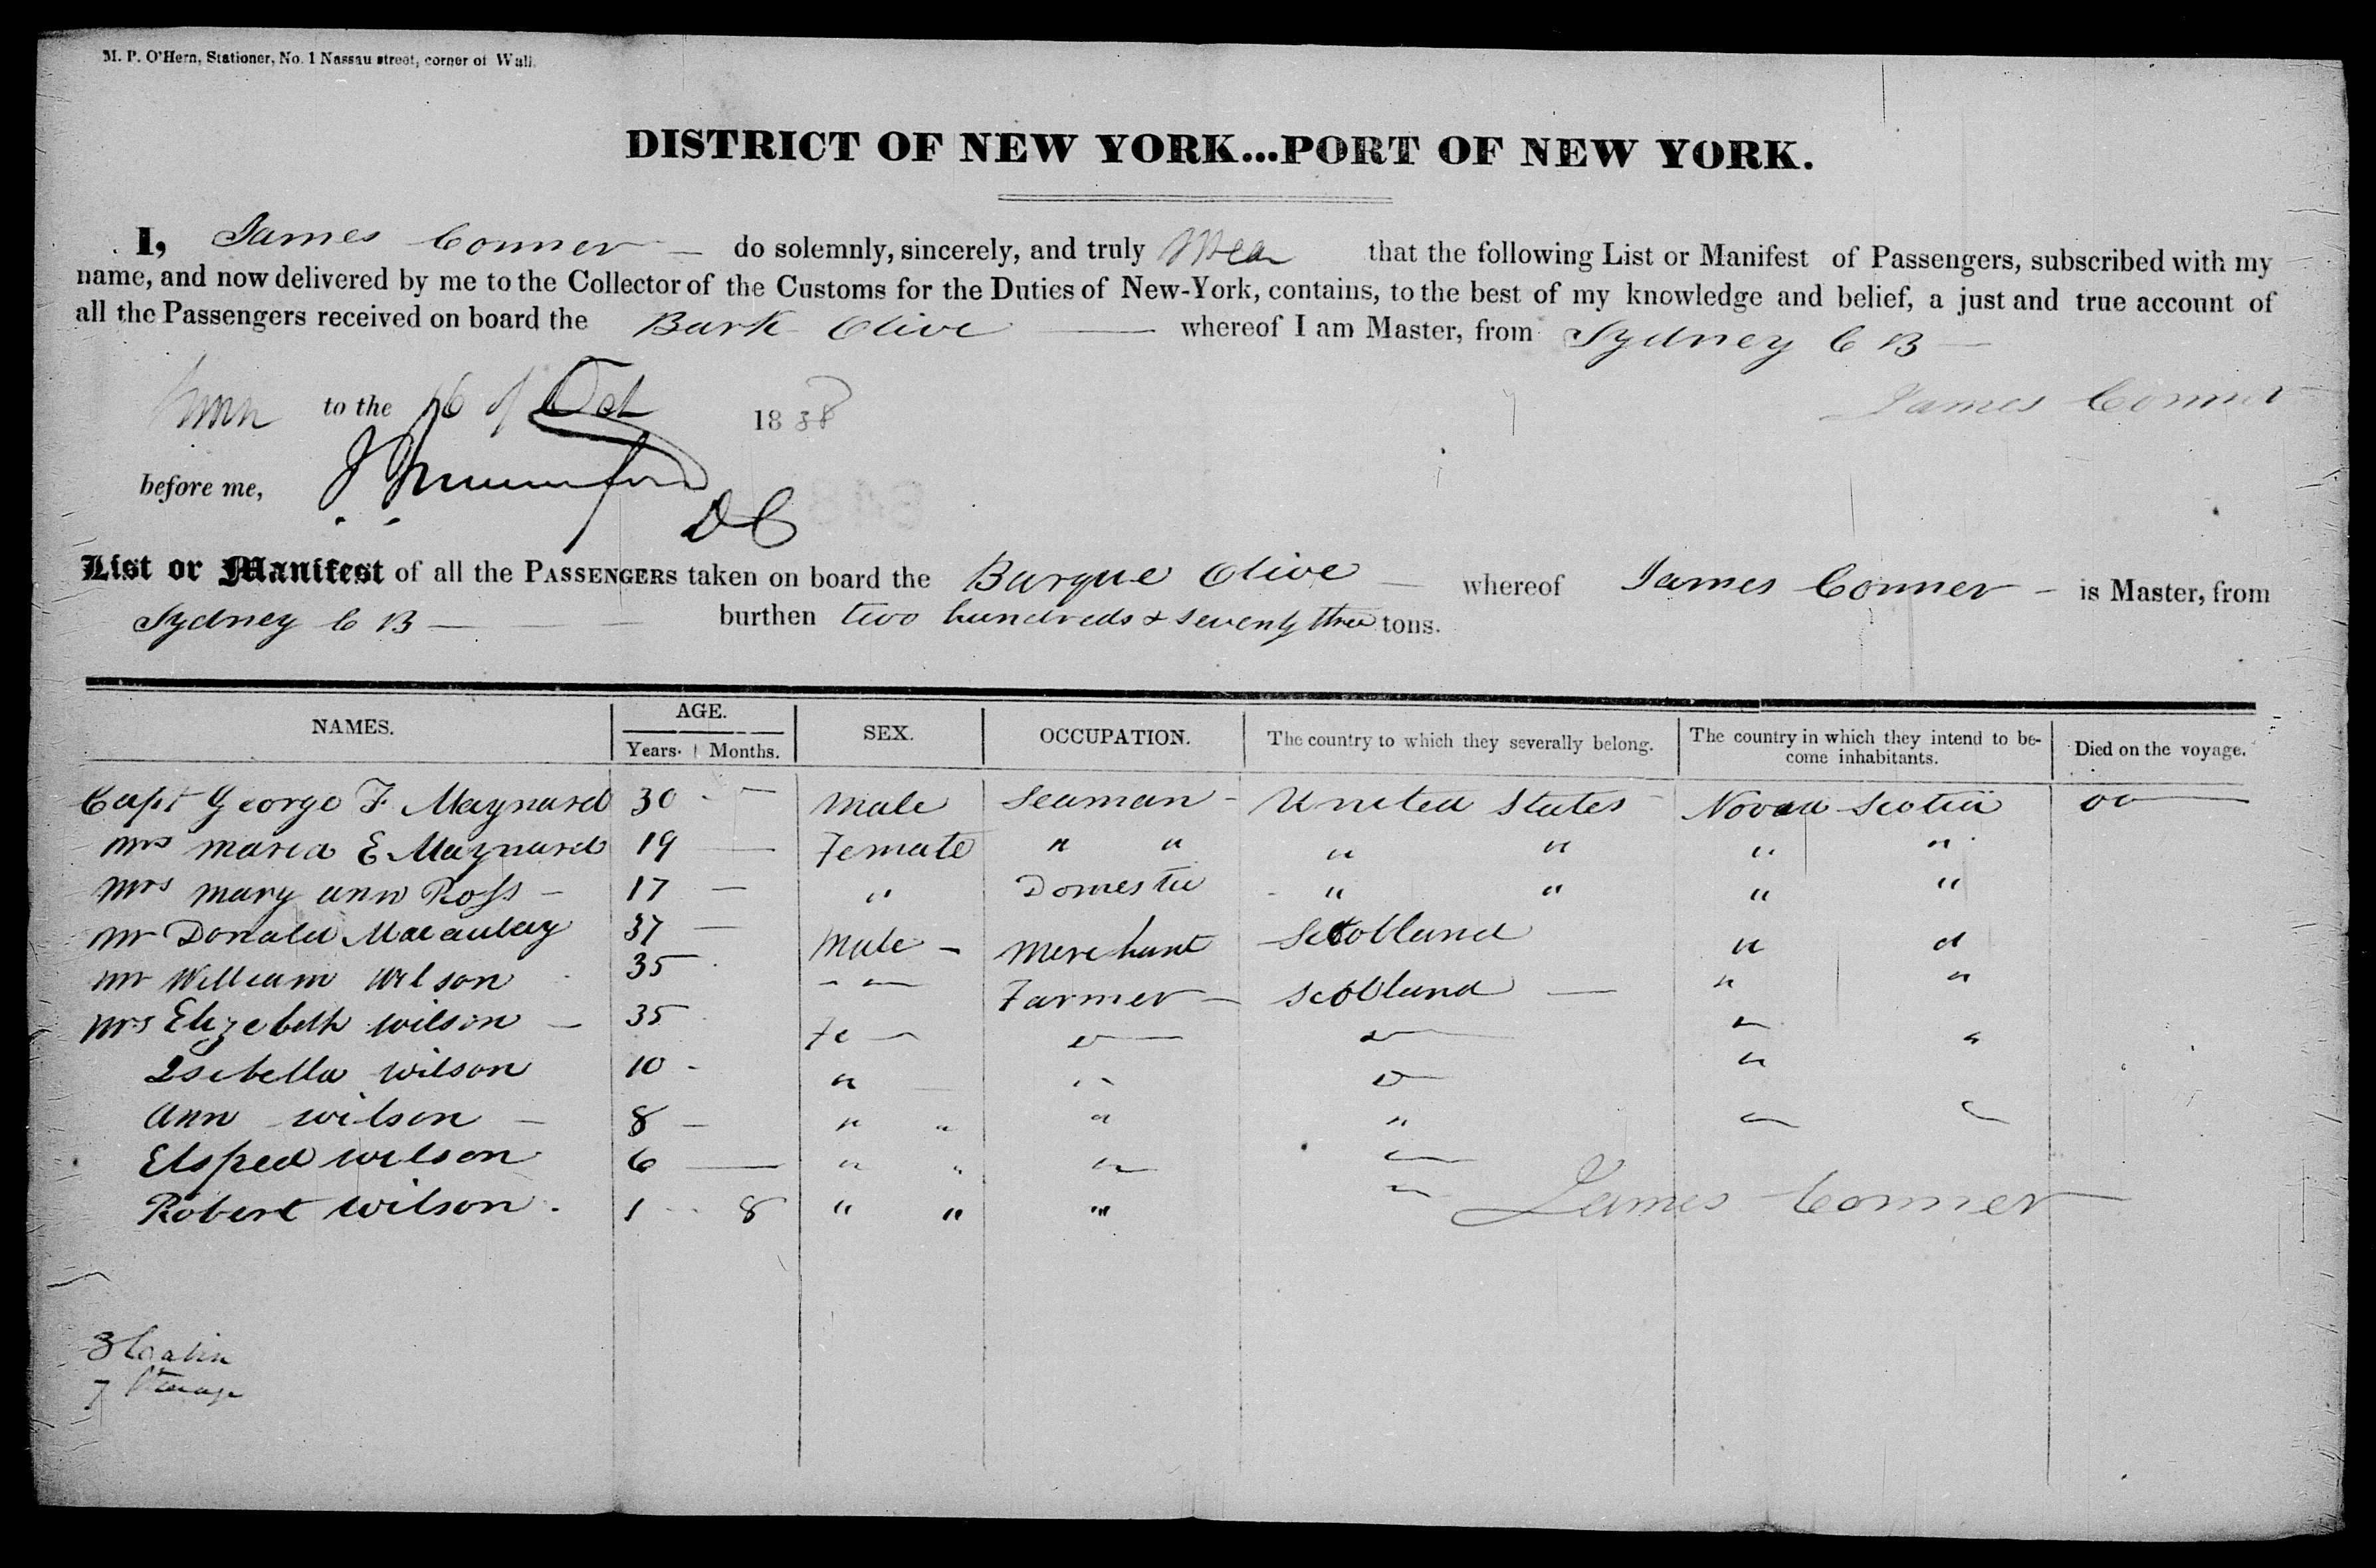 M. P. O'Hern, Stationer, No. 1 Nassau street, corner of Wall.
DISTRICT OF NEW YORK...PORT OF NEW YORK.
I, James Conner do solemnly, sincerely, and truly swear that the following List or Manifest of Passengers, subscribed with my
name, and now delivered by me to the Collector of the Customs for the Duties of New-York, contains, to the best of my knowledge and belief, a just and true account of
all the Passengers received on board the Bark Olive whereof I am Master, from Sydney C B
James Conner
Sworn to the 16 of Oct 1838
before me, D C
List or Manifest of all the PASSENGERS taken on board the Barque Olive whereof James Conner is Master, from
Sydney C B burthen two hundreds & seventy three tons.
NAMES. AGE. Years. Months. SEX. OCCUPATION. The country to which they severally belong. The country in which they intend to become inhabitants. Died on the voyage.
Capt George F. Maynard 30 Male Seaman United States Novaa Scotia oo
Mrs Maria E Maynard 19 Female " " " " " "
Mrs Mary Ann Ross 17 " Domestic " " " "
Mr Donald Macaulay 37 Male Merchant Scotland " "
Mr William Wilson 35 " Farmer Scotland " "
Mrs Elizebeth Wilson 35 Fe " " " "
Isebella Wilson 10 " " " "
Ann Wilson 8 " " " " " "
Elsped Wilson 6 " " " "
Robert Wilson 1 8 " " " " James Conner
3 Cabin
7 Sterage